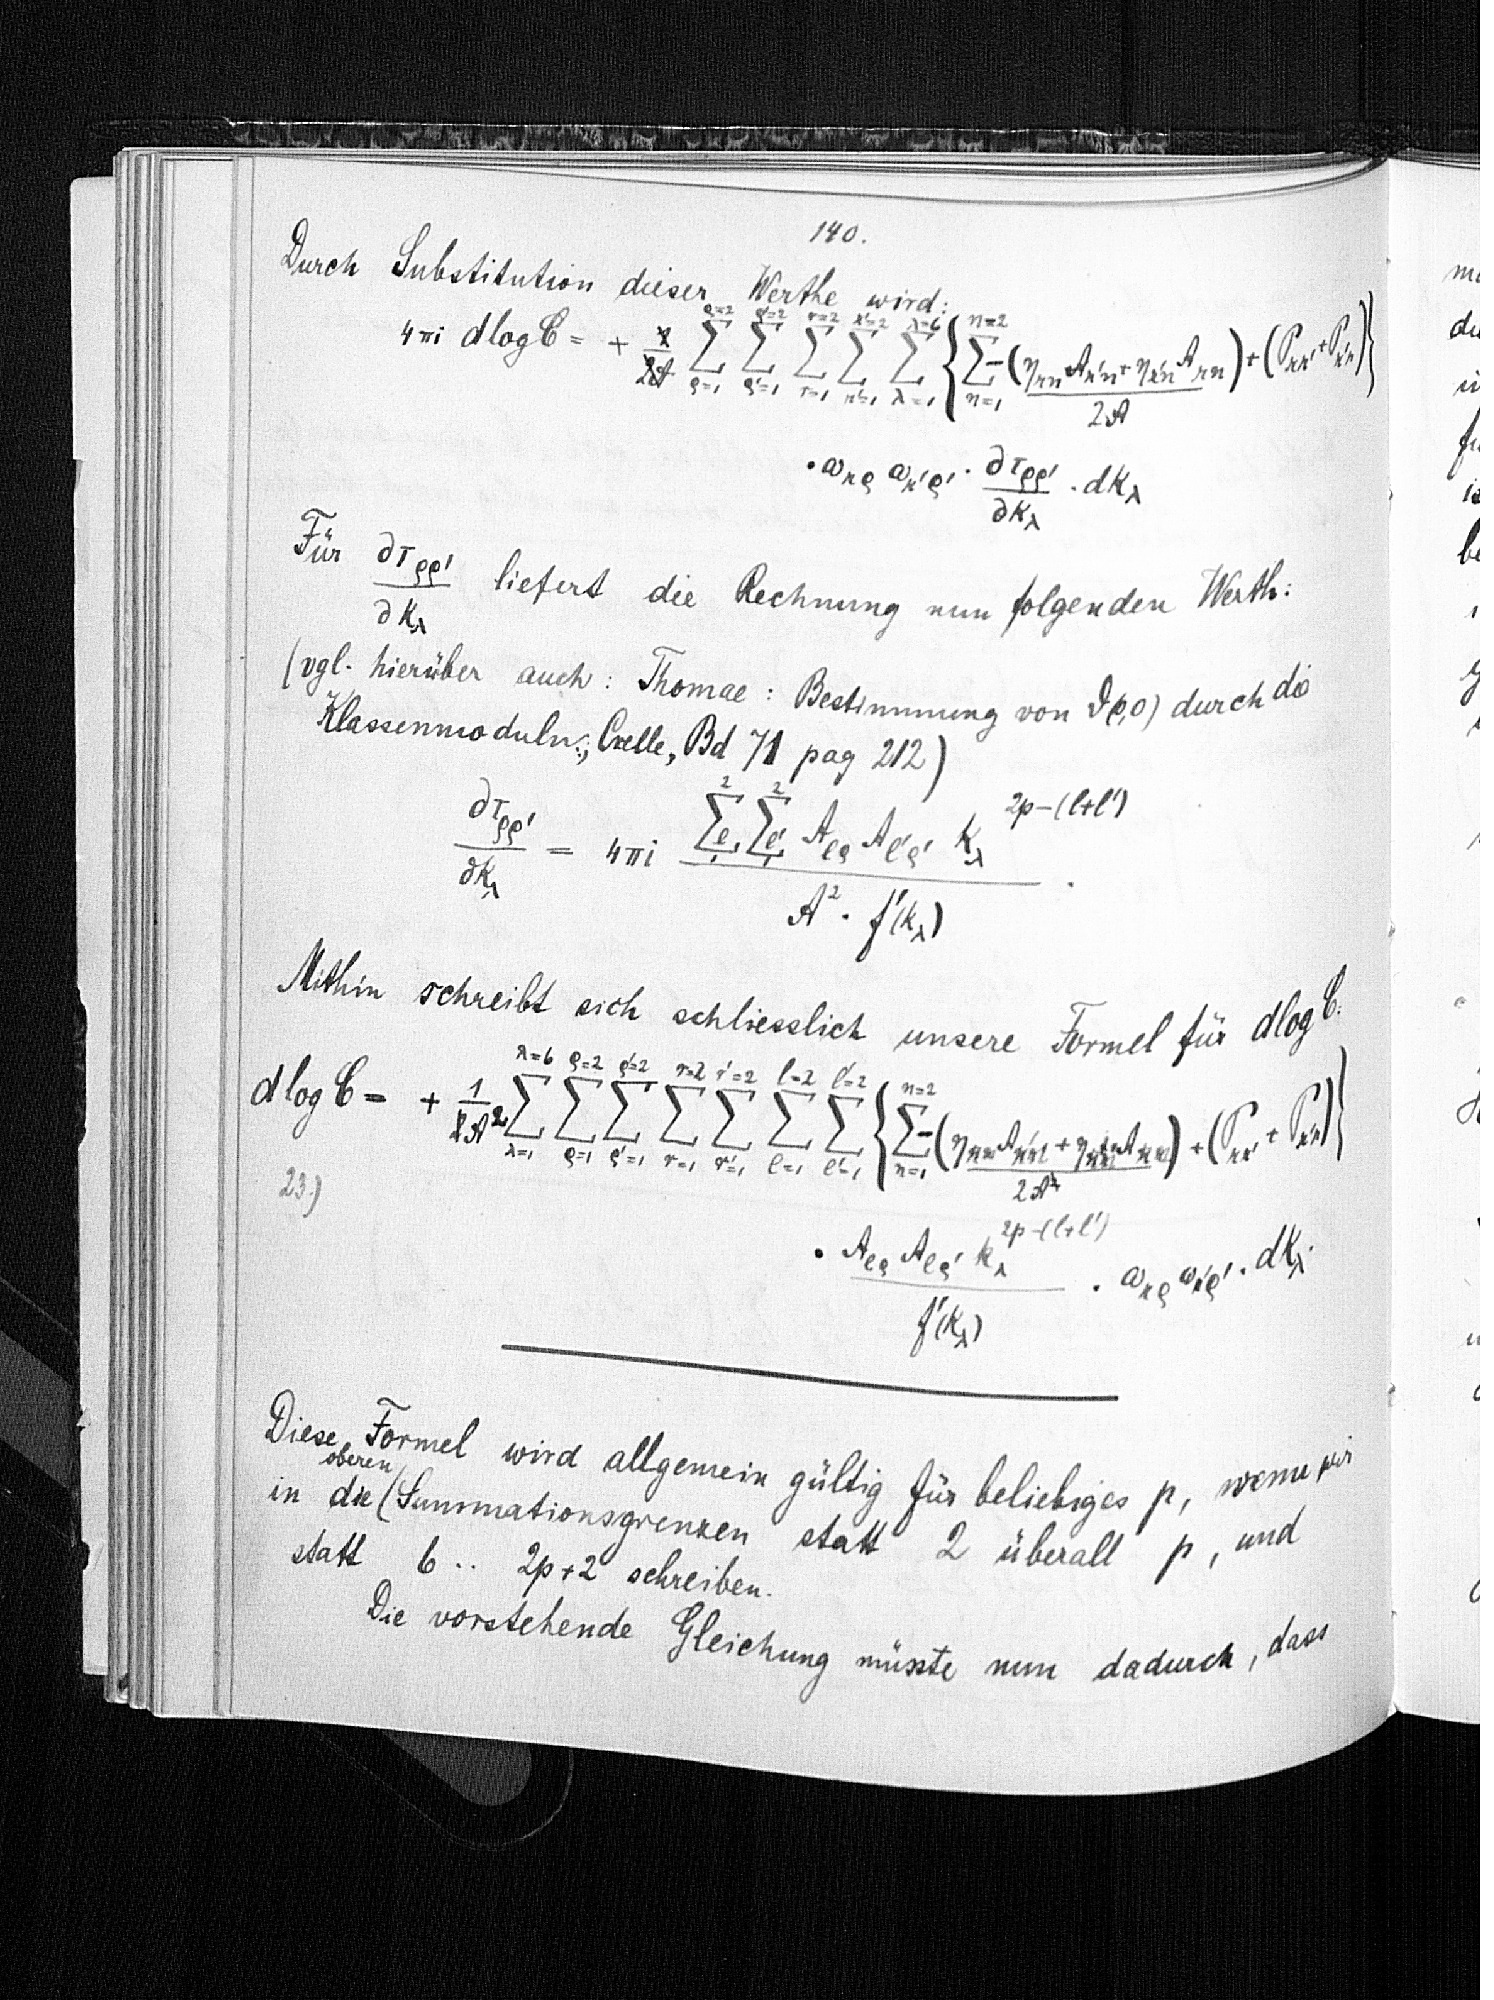 140.
Durch Substitution dieser Werthe wird:
4πi dlog C = + Σ_{ρ=1}^{ρ=2} Σ_{ρ'=1}^{ρ'=2} Σ_{r=1}^{r=2} Σ_{r'=1}^{r'=2} Σ_{λ=1}^{λ=6} { Σ_{n=1}^{n=2} −(η_{rn} A_{r'n} + η_{r'n} A_{rn})/2A + (P_{rr'} + P_{r'r}) }
· ω_{rρ} ω_{r'ρ'} · ∂τ_{ρρ'}/∂k_λ · dk_λ
Für ∂τ_{ρρ'}/∂k_λ liefert die Rechnung nun folgenden Werth:
(vgl. hierüber auch: Thomae: Bestimmung von ϑ(0,0) durch die
Klassenmoduln, Crelle, Bd 71 pag 212)
∂τ_{ρρ'}/∂k_λ = 4πi Σ_l^2 Σ_{l'}^2 A_{lρ} A_{l'ρ'} k_λ^{2p−(l+l')} / A² · f'(k_λ) .
Mithin schreibt sich schliesslich unsere Formel für dlog C:
dlog C = + 1/2A² Σ_{λ=1}^{λ=6} Σ_{ρ=1}^{ρ=2} Σ_{ρ'=1}^{ρ'=2} Σ_{r=1}^{r=2} Σ_{r'=1}^{r'=2} Σ_{l=1}^{l=2} Σ_{l'=1}^{l'=2} { Σ_{n=1}^{n=2} −(η_{rn} A_{r'n} + η_{r'n} A_{rn})/2A + (P_{rr'} + P_{r'r}) }
23.)
· A_{lρ} A_{lρ'} k_λ^{2p−(l+l')} / f'(k_λ) · ω_{rρ} ω_{r'ρ'} · dk_λ.
Diese Formel wird allgemein gültig für beliebiges p, wenn wir
oberen
in die (Summationsgrenzen statt 2 überall p, und
statt 6 .. 2p+2 schreiben.
Die vorstehende Gleichung müsste nun dadurch, dass